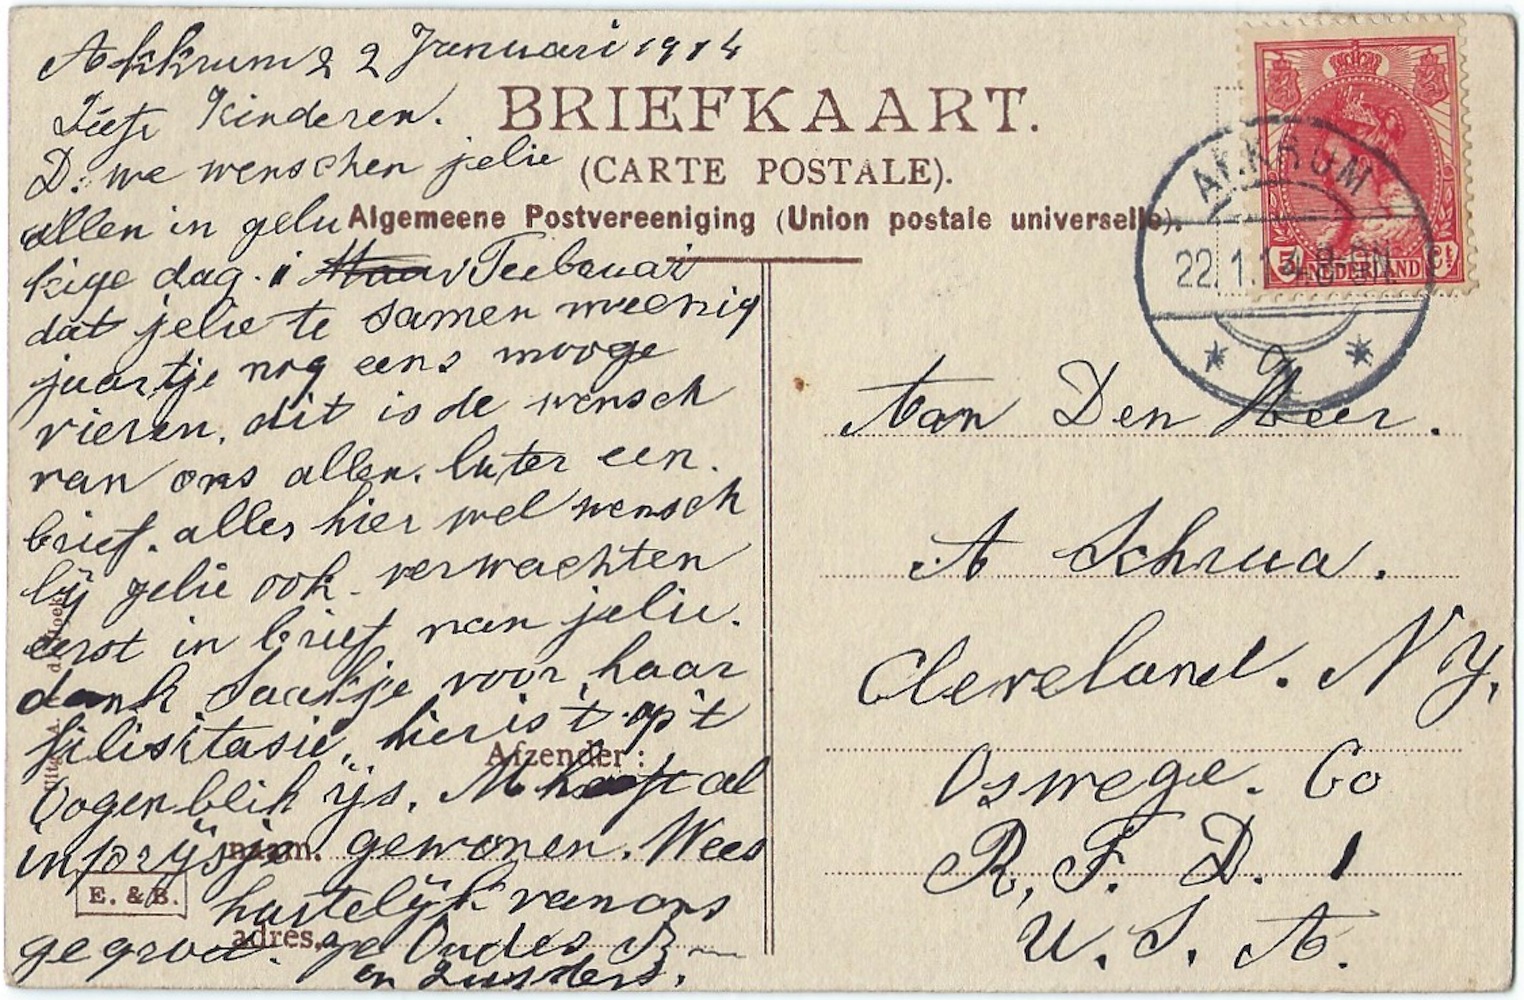 Akkrum 22 Januari 1914
Liefe Kinderen.
D. we wenschen jelie
allen in gelu
kige dag. i Maar Feebruari
dat jelie te samen weenig
juartje nog eens mooge
vieren. dit is de wensch
van ons allen. later een.
brief. alles hier wel wensch
lij gelie ook verwachten
eerst in brief van jelie.
dank Saakje voor haar
filisitasie. hier is 't op 't
Oogenblik ijs. M heeft al
in prijsje gewonen. Wees
hartelijk van ons
gegroet. je Oudes B
en zusters.
BRIEFKAART.
(CARTE POSTALE).
Algemeene Postvereeniging (Union postale universelle).
Afzender:
naam.
adres.
E. & B.
AKKRUM
22.1.14.8-9N
NEDERLAND
5 Ct
Aan Den Heer.
A Schrua.
Cleveland. NY,
Oswege. Co
R, F. D. 1
U. S. A.